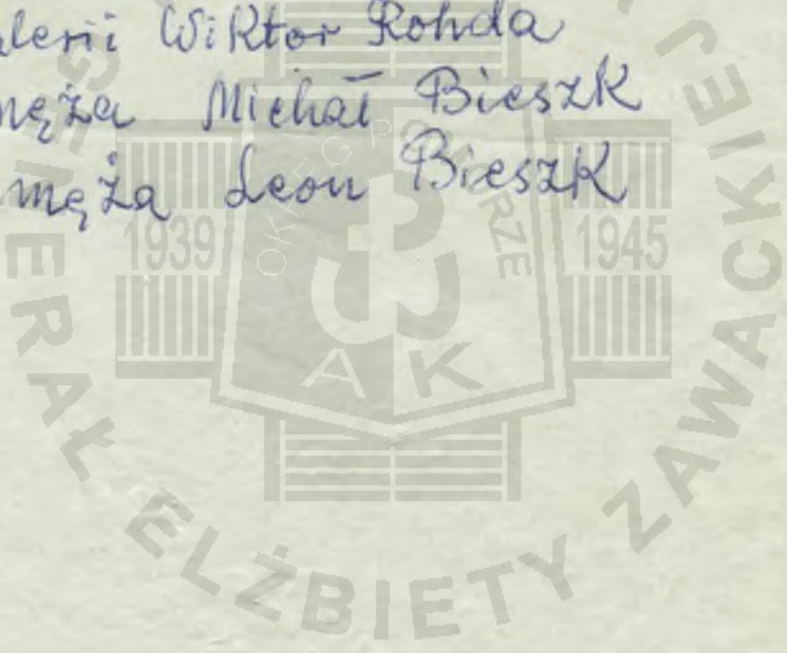 alerii Wiktor Rohda
męża Michał Bieszk
męża Leon Bieszk
1939 OKRĘG POMORZE 1945
AK
GENERAŁ ELŻBIETY ZAWACKIEJ